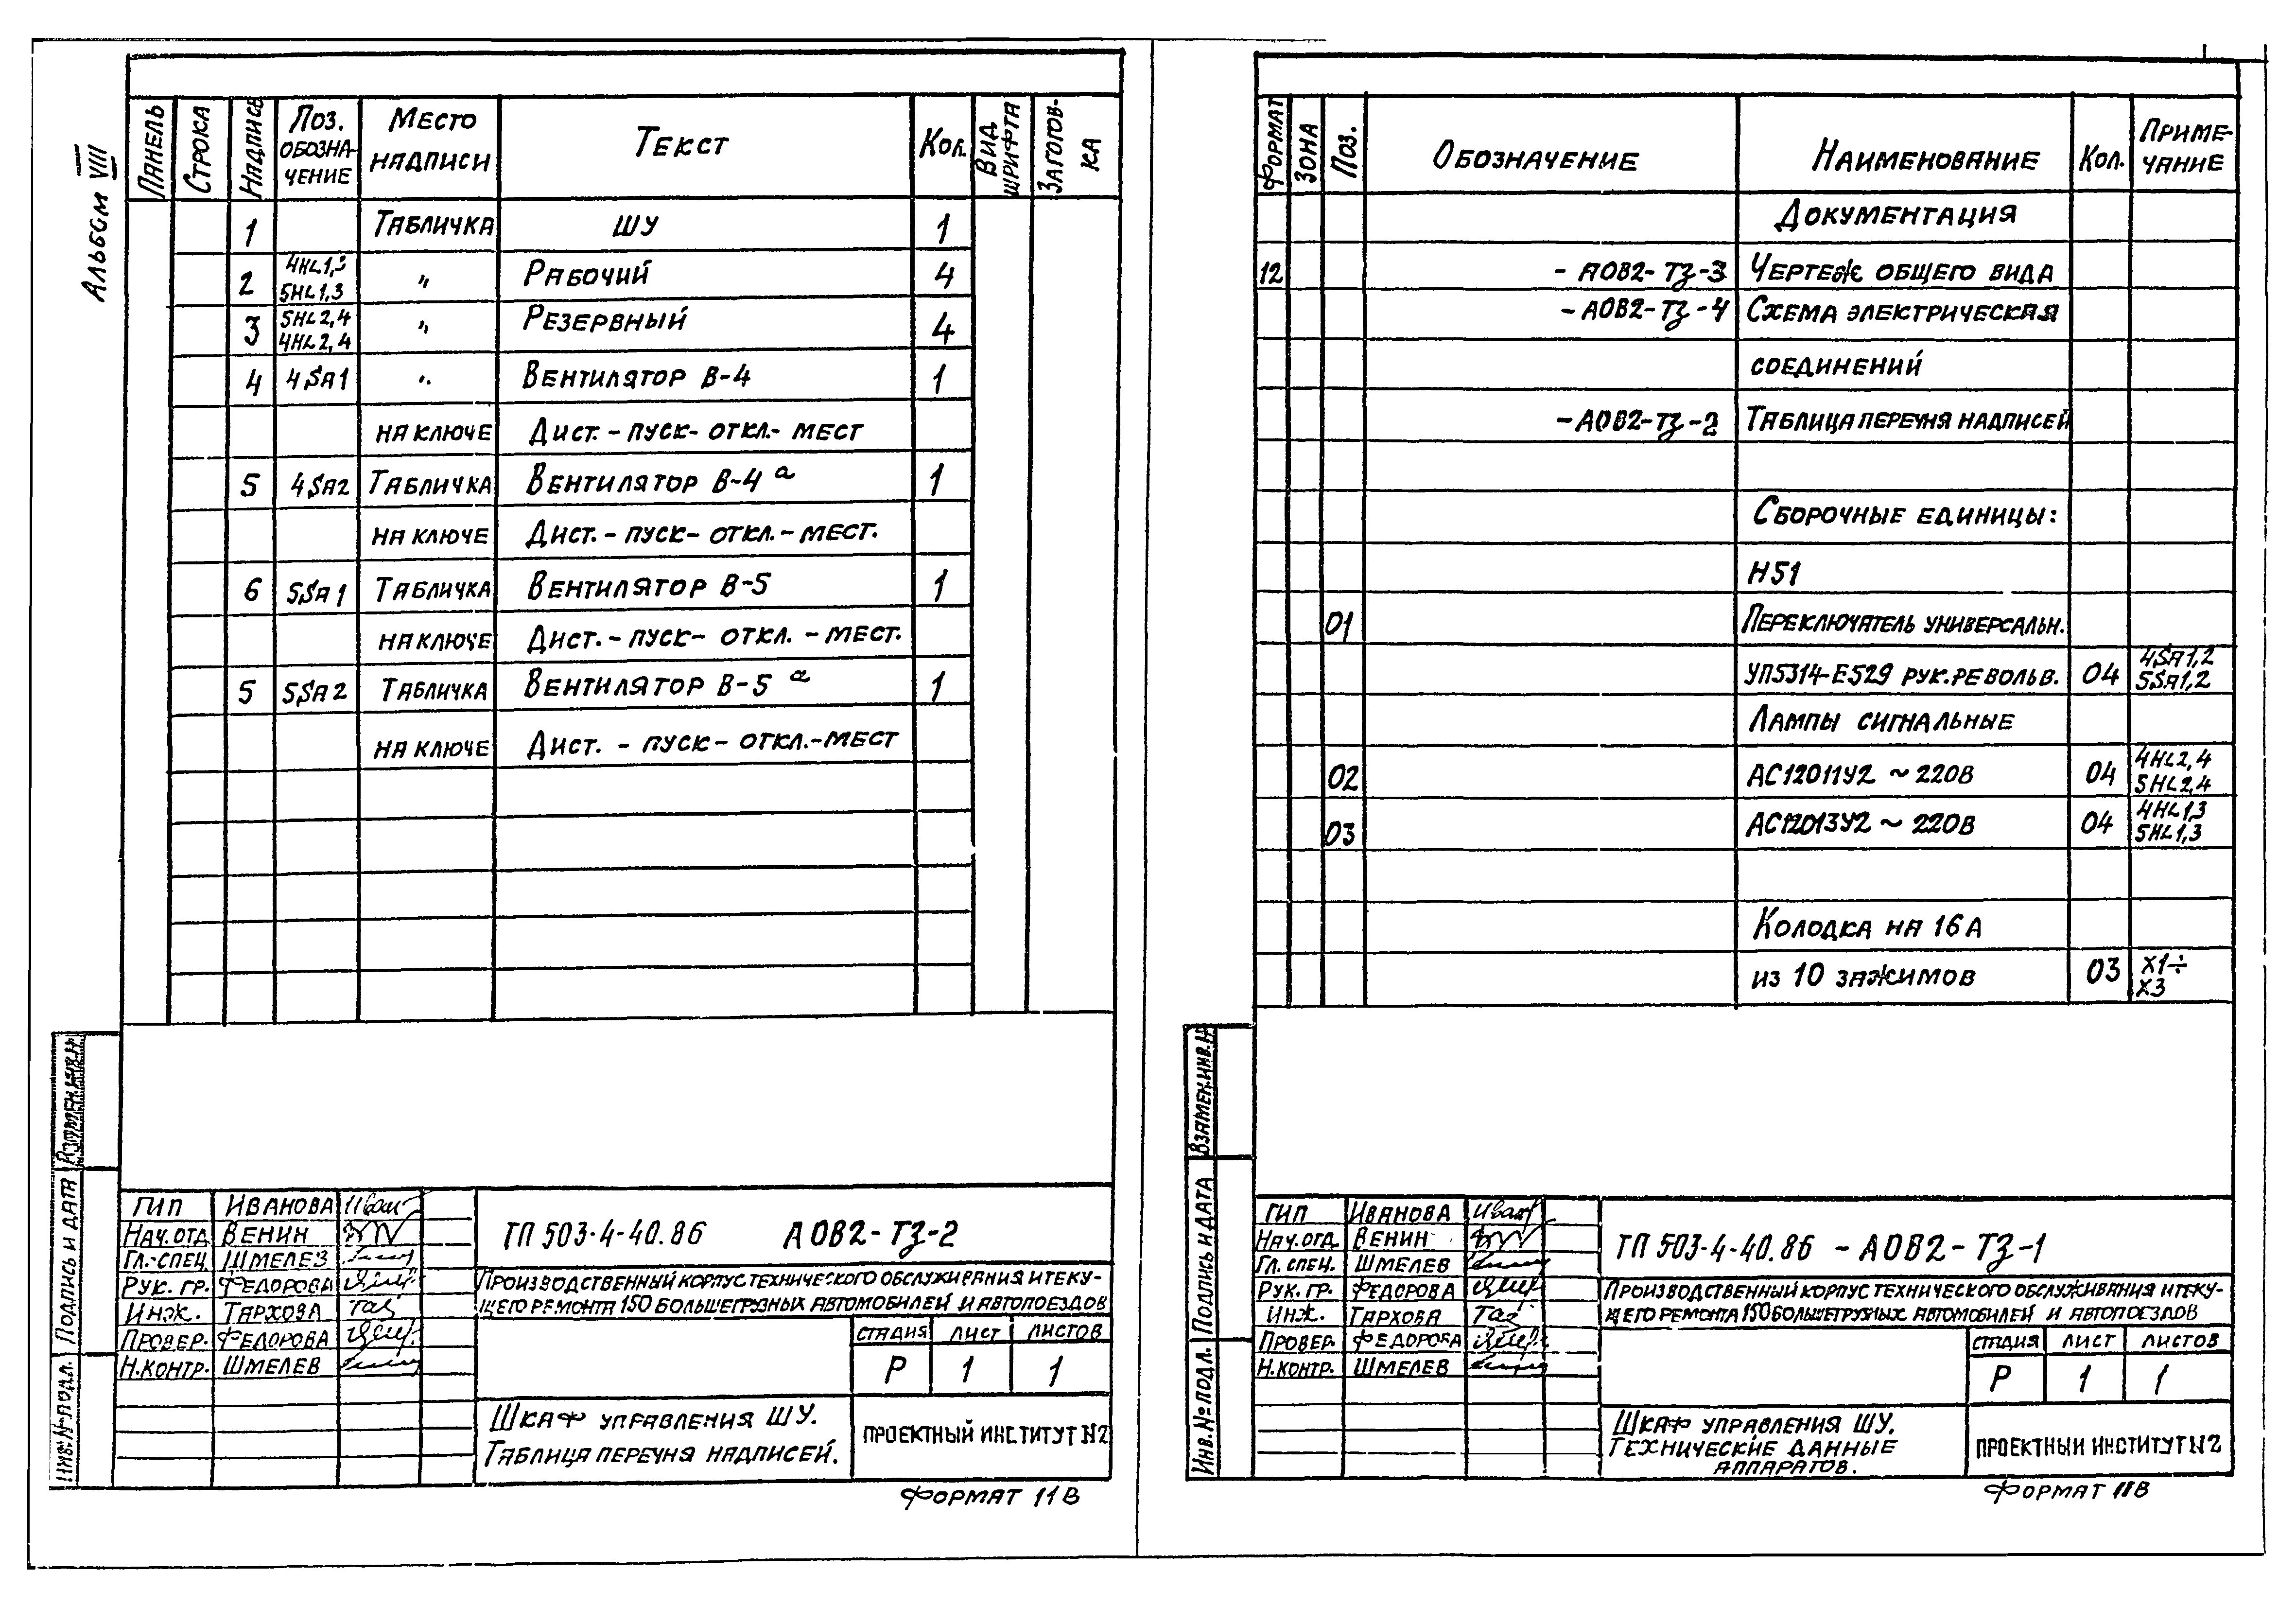 Альбом VIII
Панель Строка Надпись Поз. обозна-чение Место надписи Текст Кол. Вид шрифта Заготов-ка
1 Табличка ШУ 1
2 4HL1,3 5HL1,3 " Рабочий 4
3 5HL2,4 4HL2,4 " Резервный 4
4 4SA1 " Вентилятор В-4 1
на ключе Дист.-пуск-откл.-мест
5 4SA2 Табличка Вентилятор В-4а 1
на ключе Дист.-пуск-откл.-мест.
6 5SA1 Табличка Вентилятор В-5 1
на ключе Дист.-пуск-откл.-мест.
5 5SA2 Табличка Вентилятор В-5а 1
на ключе Дист.-пуск-откл.-мест
Подпись и дата
Инв. № подл.
ГИП Иванова
Нач.отд. Венин
Гл.спец. Шмелев
Рук. гр. Федорова
Инж. Тархова
Провер. Федорова
Н.контр. Шмелев
ТП 503-4-40.86 АОВ2-ТЗ-2
Производственный корпус технического обслуживания и теку-
щего ремонта 150 большегрузных автомобилей и автопоездов
стадия лист листов
Р 1 1
Шкаф управления ШУ.
Таблица перечня надписей.
Проектный институт N2
Формат 11В
Формат Зона Поз. Обозначение Наименование Кол. Приме-чание
Документация
12 -АОВ2-ТЗ-3 Чертеж общего вида
-АОВ2-ТЗ-4 Схема электрическая
соединений
-АОВ2-ТЗ-2 Таблица перечня надписей
Сборочные единицы:
Н51
01 Переключатель универсальн.
УП5314-Е529 рук.револьв. 04 4SA1,2 5SA1,2
Лампы сигнальные
02 АС12011У2 ~ 220В 04 4HL2,4 5HL2,4
03 АС12013У2 ~ 220В 04 4HL1,3 5HL1,3
Колодка на 16А
из 10 зажимов 03 X1÷ X3
Взамен.инв.N
Подпись и дата
Инв.№ подл.
ГИП Иванова
Нач.отд. Венин
Гл. спец. Шмелев
Рук. гр. Федорова
Инж. Тархова
Провер. Федорова
Н.контр. Шмелев
ТП 503-4-40.86 - АОВ2-ТЗ-1
Производственный корпус технического обслуживания и теку-
щего ремонта 150 большегрузных автомобилей и автопоездов
стадия лист листов
Р 1 1
Шкаф управления ШУ.
Технические данные
аппаратов.
Проектный институт N2
Формат 11В